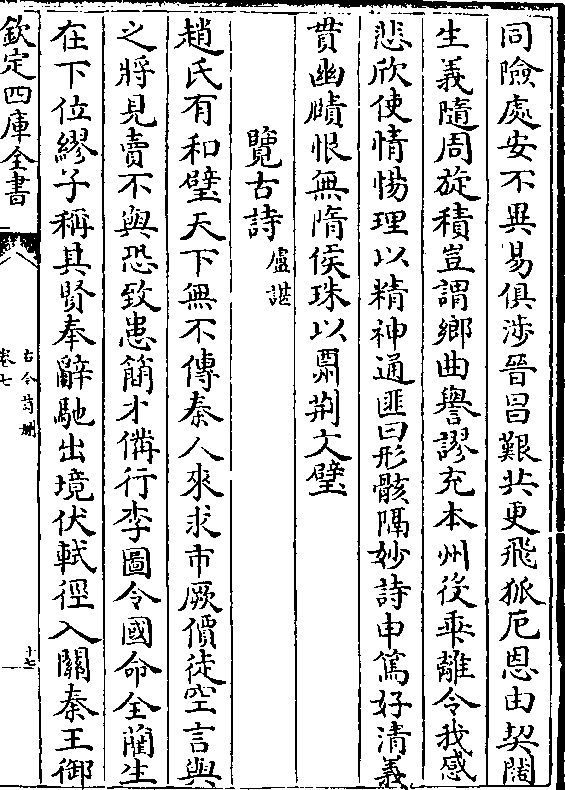 同險處安不異易俱涉晉昌艱共更飛狐厄恩由契闊
生義隨周旋積豈謂鄉曲譽謬充本州役乘離令我感
悲欣使情惕理以精神通匪曰形骸隔妙詩申篤好清義
貫幽賾恨無隋侯珠以酬荆文璧
覽古詩 盧諶
趙氏有和璧天下無不傳秦人來求市厥價徒空言與
之將見賣不與恐致患簡才備行李圖令國命全藺生
在下位繆子稱其賢奉辭馳出境伏軾徑入關秦王御
欽定四庫全書
古今詩刪
卷七
十七